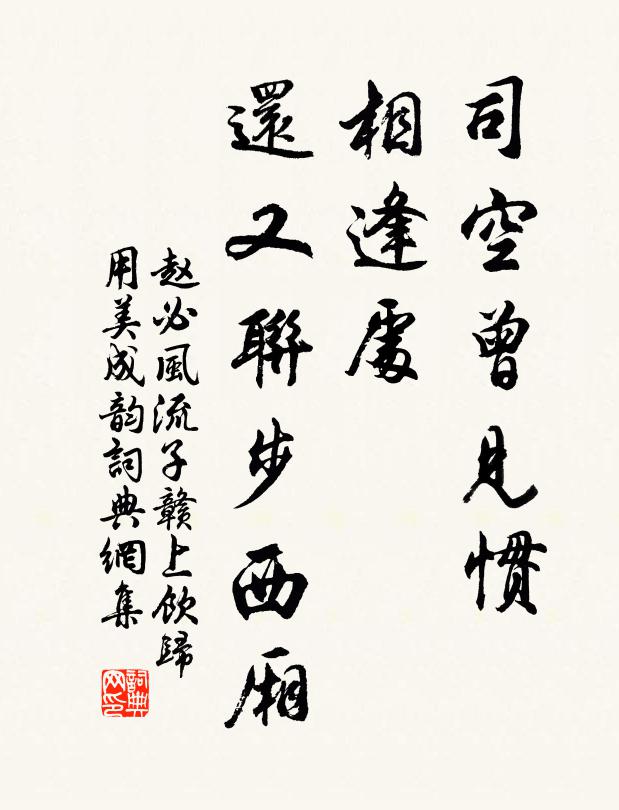 司空曾見慣
相逢處
還又聯步西廂
赵必風流子贛上飲歸
用美成韵詞典網集
詞典網印